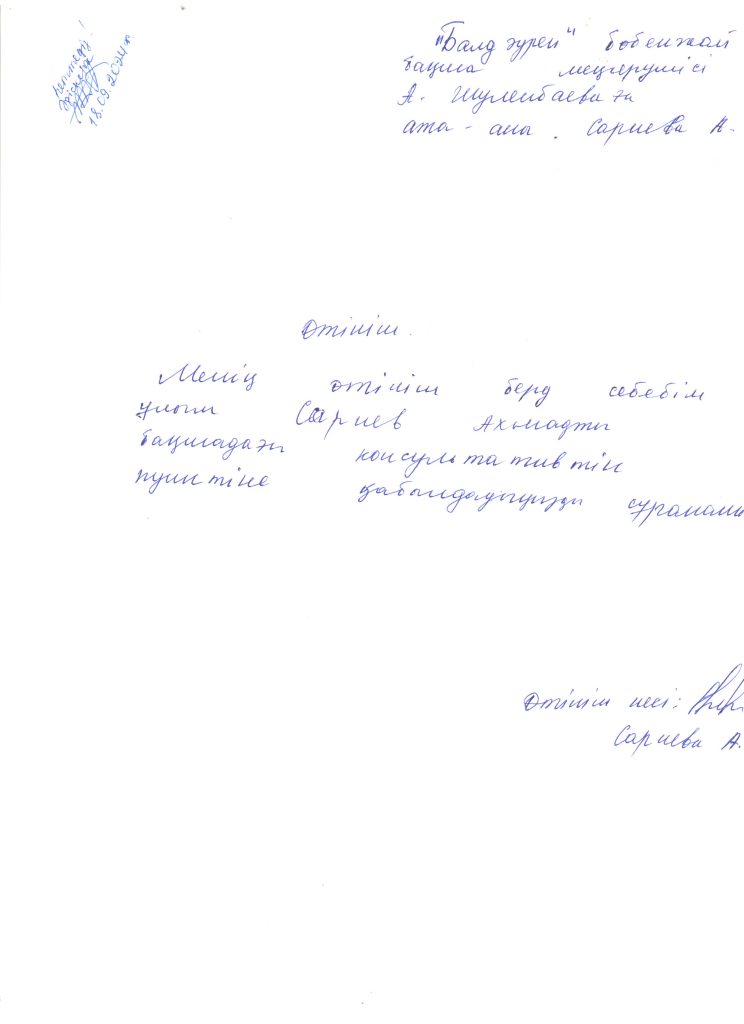 "Балдәурен" бөбекжай
бақша меңгерушісі
А. Шуленбаеваға
ата-ана. Сариева А.
Өтініш.
Менің өтініш берд себебім
ұлым Сариев Ахмадты
бақшадағы консультативтін
пунктіне қабылдауыңызды сұраймын
Өтініш иесі:
Сариева А.
18.09.2024ж